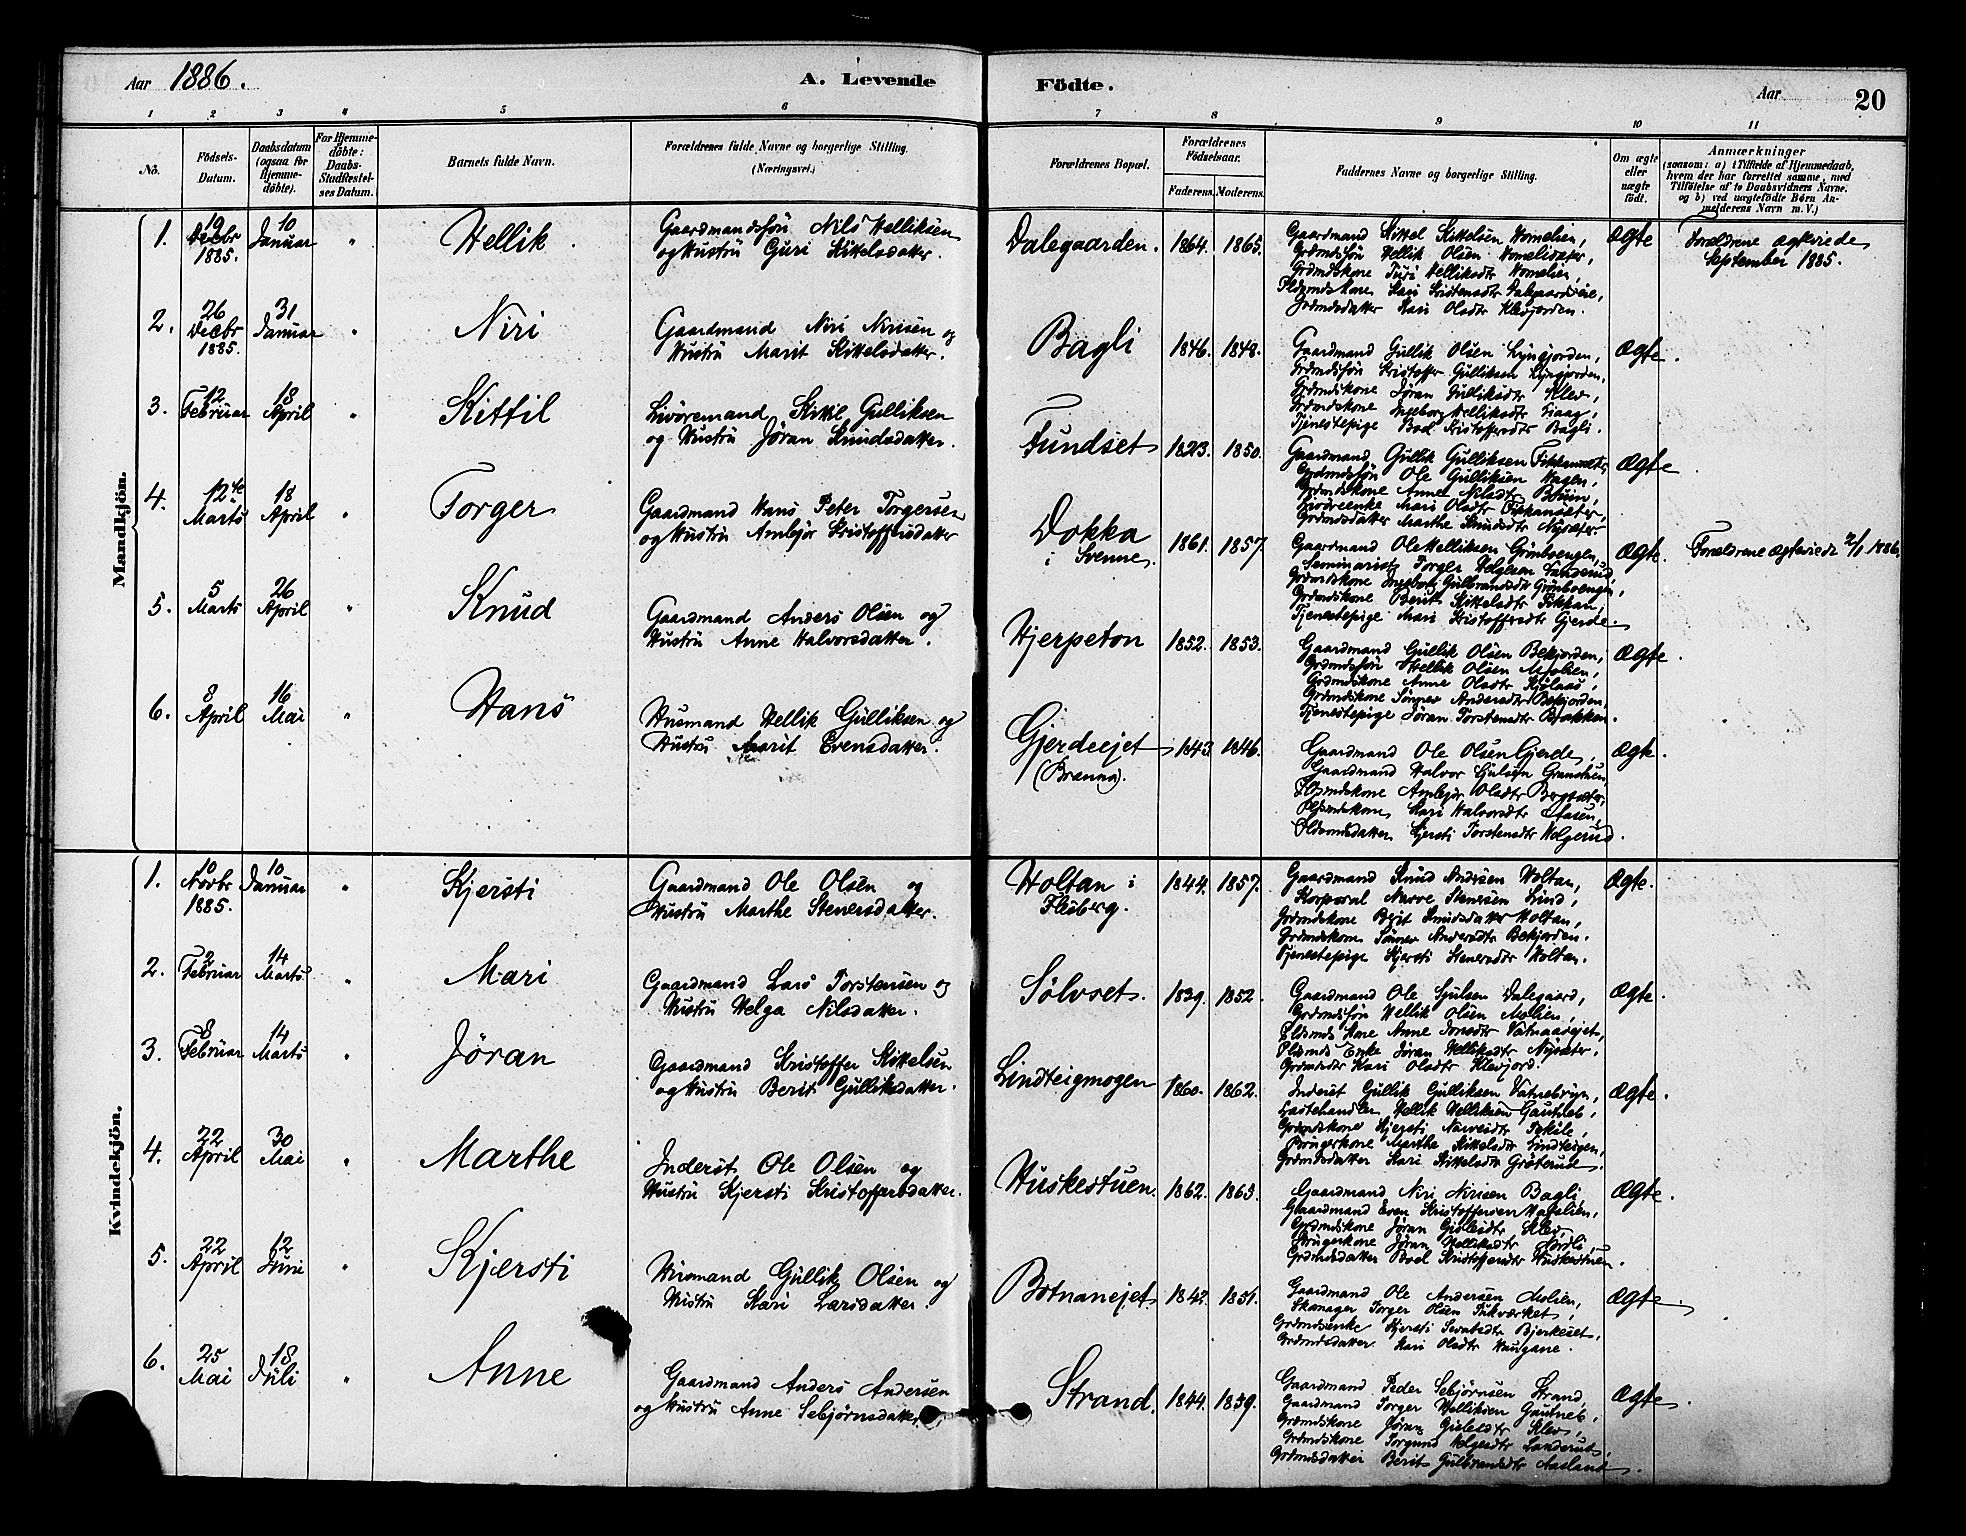 Aar 1886.
A. Levende
Födte.
Aar
20
1
2
3
4
5
6
7
8
9
10
11
No.
Födsels-
Datum.
Daabsdatum
(ogsaa for
Hjemme-
döbte).
For Hjemme-
döbte:
Daabs-
Stadfæstel-
ses Datum.
Barnets fulde Navn.
Forældrenes fulde Navne og borgerlige Stilling.
(Næringsvei.)
Forældrenes Bopæl.
Forældrenes
Födselsaar.
Faderens.
Moderens.
Faddernes Navne og borgerlige Stilling.
Om ægte
eller
uægte
födt.
Anmærkninger
(saasom: a) i Tilfælde af Hjemmedaab,
hvem der har forrettet samme, med
Tilföielse af to Daabsvidners Navne.
og b) ved uægtefödte Börn An-
melderens Navn m.V.)
Mandkjön.
1.
19
Decbr
1885.
10
Januar
"
Hellik.
Gaardmandsfön Nils Helliksen
og Hustru Guri Kittelsdatter.
Dalegaarden.
1864.
1865.
Gaardmand Kittel Kittelsen
Grdmdsfön Hellik Olsen
Grdmdskone Turi Helliksdtr
Kari
Grdmdsdatter Kari Olsdtr Klevjorden.
Ægte
Forældrene ægteviede
September 1885.
2.
26
Decbr
1885.
31
Januar
"
Niri
Gaardmand Niri Nirisen og
Hustru Marit Kittelsdatter.
Bagli
1846.
1848.
Gaardmand Gullik Olsen Lyngjorden,
Grdmdsfön Kristoffer Gulliksen Lyngjorden,
Grdmdskone Jöran Gulliksdtr Klev,
Grdmdskone Ingeborg Helliksdtr Haag,
Tjenestepige Boel Kristoffersdtr Bagli.
Ægte.
3.
12
Februar
18
April
"
Kittil
Livöremand Kittil Gulliksen
og Hustru Jöran Knudsdatter.
Fundset
1823.
1850.
Gaardmand Gullik Gulliksen
Grdmdsfön Ole Gulliksen Hagen,
Grdmdskone Anne Nilsdtr
Mari Olsdtr
Grdmdsdatter Marthe Knudsdtr Nysæter.
Ægte
4.
12te
Marts
18
April
"
Torger
Gaardmand Hans Peter Torgersen
og Hustru Ambjör Kristoffersdatter
Dokka
i Svenne.
1861.
1857.
Gaardmand Ole Helliksen Grönboengen,
Seminarist Torger Helgesen Landerud,
Grdmdskone Ingeborg Gulbrandsdtr Grönboengen,
Grdmdskone Berit Kittelsdtr Fikkan,
Tjenestepige Mari Kristoffersdtr Gjerde.
Ægte.
Forældrene ægteviede 2/1 1886.
5.
5
Marts
26
April
"
Knud
Gaardmand Anders Olsen og
Hustru Anne Halvorsdatter.
Hjerpeton
1852.
1853.
Gaardmand Gullik Olsen Bekjorden,
Grdmdsfön Hellik Olsen Moen,
Grdmdskone Anne Olsdtr
Grdmdskone Sönnev Andersdtr Bekjorden,
Tjenestepige Jöran Torstensdtr Brakken.
Ægte.
6.
8
April
16
Mai
"
Hans
Husmand Hellik Gulliksen og
Hustru Marit Evensdatter.
Gjerdeejet
(Brenna).
1843.
1846.
Gaardmand Ole Olsen Gjerde,
Gaardmand Halvor Gulsen
Ambjör Olsdtr
Kari Halvorsdtr
Kjersti Torstensdtr Helgerud.
Ægte.
Kvindekjön.
1.
10
Novbr
1885.
10
Januar
"
Kjersti
Gaardmand Ole Olsen og
Hustru Marthe Stenersdatter.
Holtan i
Flesberg.
1844.
1857.
Gaardmand Knud Andersen Holtan,
Korporal Narve Stenersen Lind,
Grdmdskone Berit Knudsdatter Holtan,
Grdmdskone Sönnev Andersdtr Bekjorden.
Tjenestepige Kjersti Stenersdtr Holtan.
Ægte.
2.
2
Februar
14
Marts
"
Mari
Gaardmand Lars Torstensen og
Hustru Helga Nilsdatter.
Sölvset.
1839.
1852.
Gaardmand Ole Gjulsen Dalegaard,
Grdmdsfön Hellik Olsen Moen,
Kone Anne Jonsdtr Vatnaasejet,
Enke Jöran Helliksdtr Nysæter.
Kari Olsdtr Klevjord.
Ægte.
3.
8
Februar
14
Marts
"
Jöran
Gaardmand Kristoffer Kittelsen
og Hustru Berit Gulliksdatter.
Lindteigmogen
1860.
1862.
Inderst Gullik Gulliksen Vatnebryn,
Lastehandler Hellik Helliksen Gautneb,
Grdmdskone Kjersti Narvesdtr
Brugerkone Marthe Kittelsdtr Lindteigen,
Grdmdsdatter Kari Kittelsdtr Gröterud.
Ægte.
4.
22
April
30
Mai
"
Marthe
Inderst Ole Olsen og
Hustru Kjersti Kristoffersdatter.
Huskestuen.
1862.
1863.
Gaardmand Niri Nirisen Bagli,
Gaardmand Even Kristoffersen
Grdmdskone Jöran Gisledtr Klev,
Brugerkone Jöran Helliksdtr
Grdmdsdatter Boel Kristoffersdtr Huskestuen.
Ægte.
5.
22
April
12
Juni
"
Kjersti
Husmand Gullik Olsen og
Hustru Kari Larsdatter.
Botnanejet
1842.
1851.
Gaardmand Ole Andersen
Skomager Torger Olsen
Grdmdsenke Kjersti Bjerkeset,
Grdmdsdatter Kari Olsdtr Haugane.
Ægte.
6.
25
Mai
18
Juli
"
Anne
Gaardmand Anders Andersen
og Hustru Anne Sebjörnsdatter
Strand.
1844.
1859.
Gaardmand Peder Sebjörnsen Strand,
Gaardmand Torger Helliksen Gautneb,
Grdmdskone Jöran Gisledtr Klev,
Grdmdskone Torgund Helgesdtr Landerud,
Grdmdsdatter Berit Gulbrandsdtr Aasland.
Ægte.